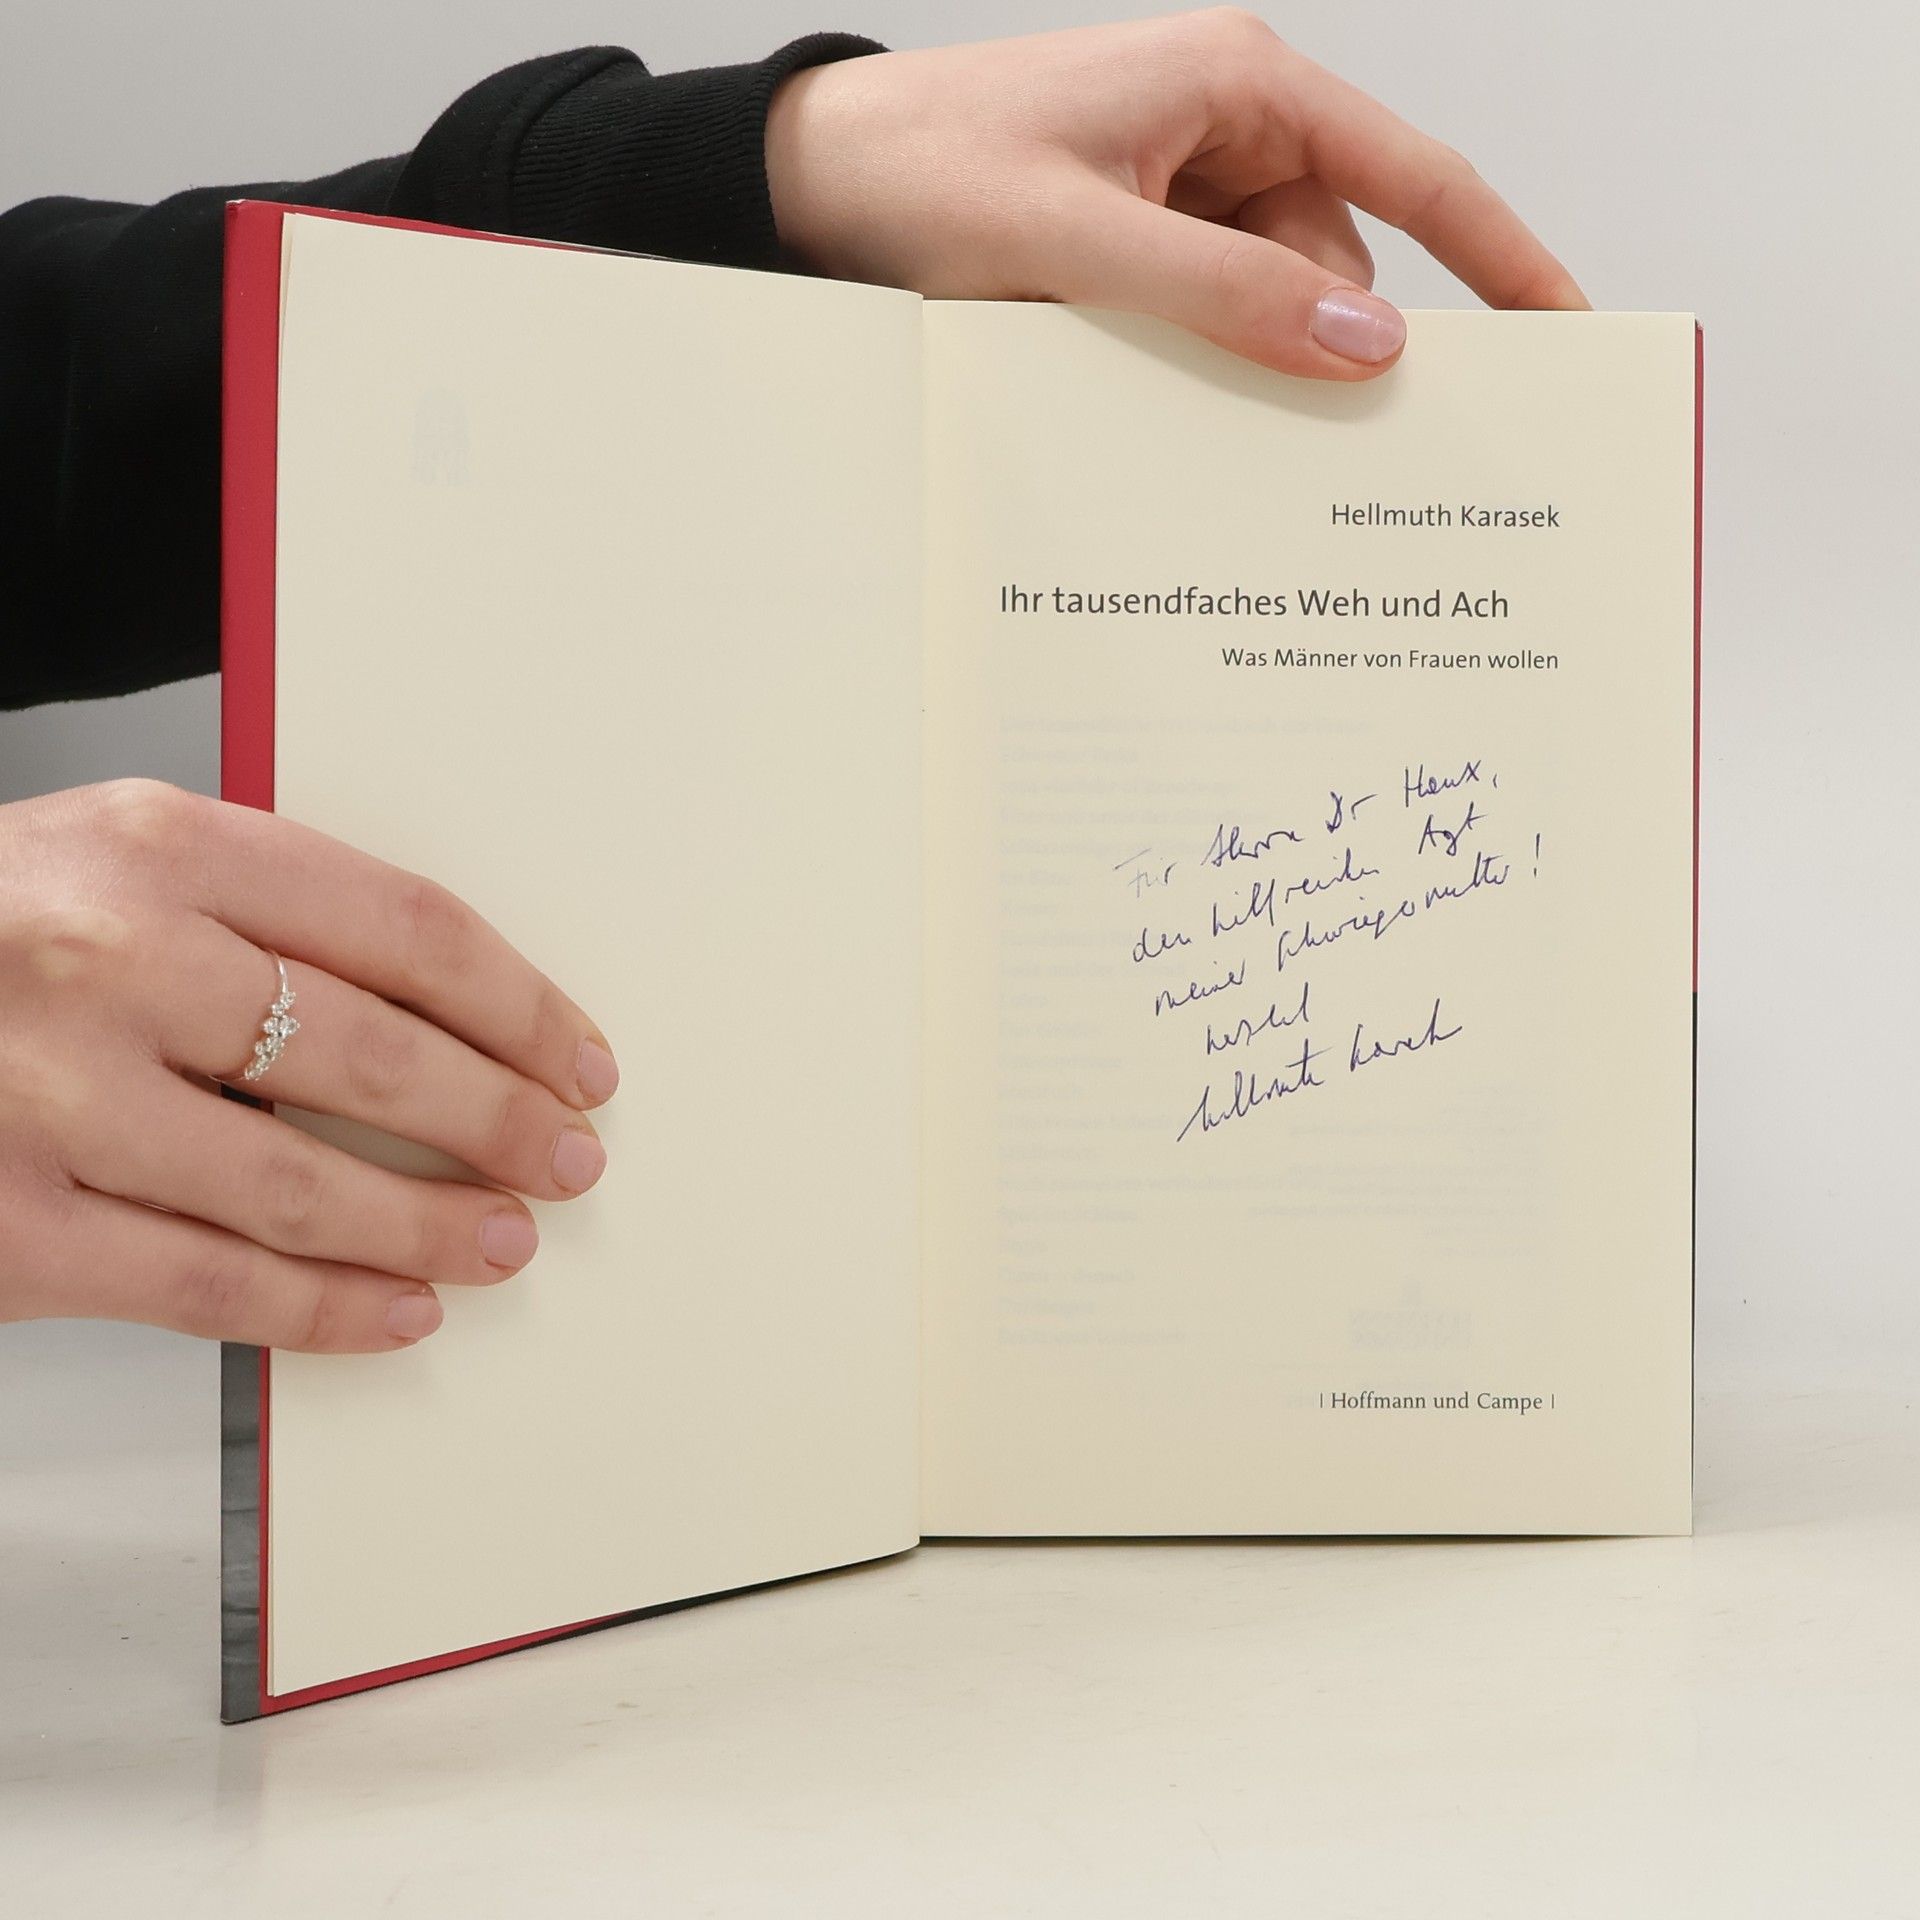 Hellmuth Karasek
Ihr tausendfaches Weh und Ach
Was Männer von Frauen wollen
Für Herrn Dr
den hilfreichen Arzt
meiner Schwiegermutter!
herzlich
Hellmuth Karasek
| Hoffmann und Campe |